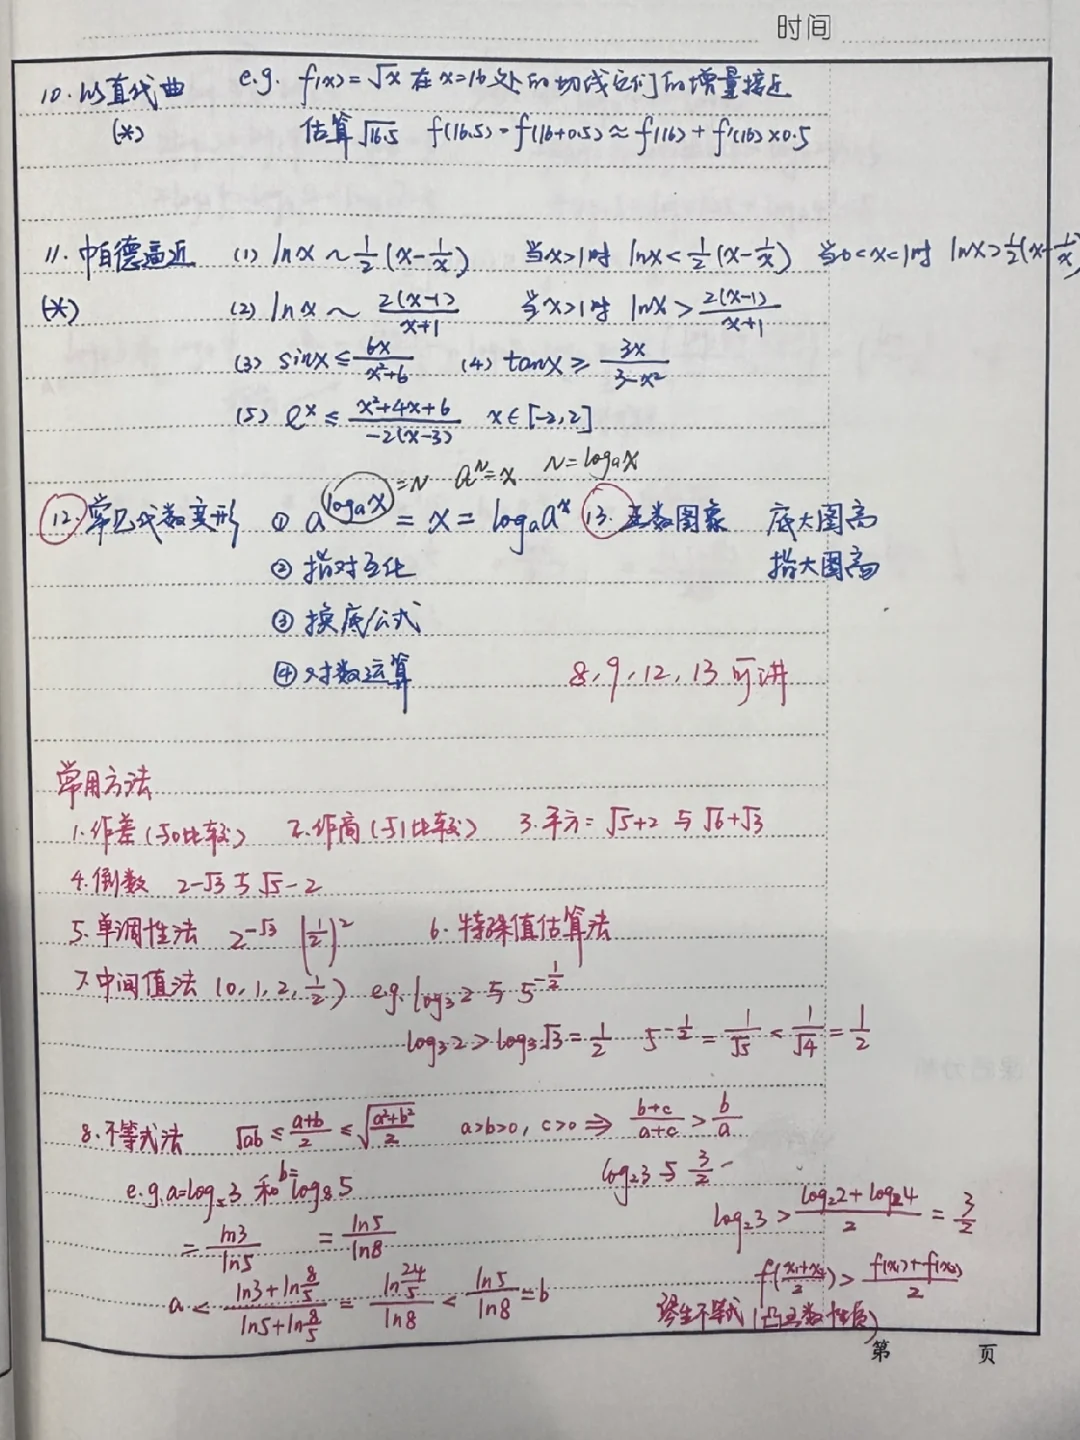 时间
10. 以直代曲 e.g. f(x)=√x 在 x=16 处的切线它们的增量接近
(*) 估算√16.5 f(16.5)=f(16+0.5)≈f(16)+f'(16)×0.5
11. 帕德逼近 (1) lnx ~ 1/2(x-1/x) 当x>1时 lnx<1/2(x-1/x) 当0<x<1时 lnx>1/2(x-1/x)
(*) (2) lnx ~ 2(x-1)/(x+1) 当x>1时 lnx>2(x-1)/(x+1)
(3) sinx≤6x/(x²+6) (4) tanx≥3x/(3-x²)
(5) eˣ≤(x²+4x+6)/(-2(x-3)) x∈[-2,2]
=N aᴺ=x N=logₐx
12. 常见代数变形 ① a^(logₐx)=x=logₐaˣ 13. 函数图象 底大图高
② 指对互化 指大图高
③ 换底公式
④ 对数运算 8, 9, 12, 13 可讲
常用方法
1. 作差(与0比较) 2. 作商(与1比较) 3. 平方= √5+2 与 √6+√3
4. 倒数 2-√3 与 √5-2
5. 单调性法 2^(-√3) (1/2)² 6. 特殊值估算法
7. 中间值法 (0, 1, 2, 1/2) e.g. log₃2 与 5^(-1/2)
log₃2>log₃√3=1/2 5^(-1/2)=1/√5<1/√4=1/2
8. 不等式法 √ab≤(a+b)/2≤√((a²+b²)/2) a>b>0, c>0 ⇒ (b+c)/(a+c)>b/a
e.g. a=log₅3 和 b=log₈5 log₂3 与 3/2
=ln3/ln5 =ln5/ln8 log₂3>(log₂2+log₂4)/2=3/2
a<(ln3+ln8/5)/(ln5+ln8/5)=(ln24/5)/ln8<ln5/ln8=b f((x₁+x₂)/2)>(f(x₁)+f(x₂))/2
琴生不等式(凸函数性质)
第 页